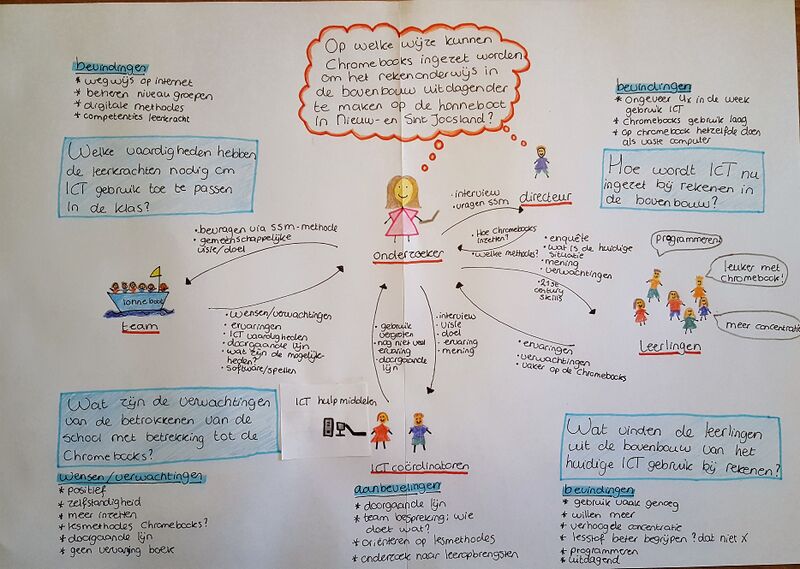 Op welke wijze kunnen
Chromebooks ingezet worden
om het rekenonderwijs in
de bovenbouw uitdagender
te maken op de honneboot
in Nieuw- en Sint Joosland?
bevindingen
* wegwijs op internet
* beheren niveau groepen
* digitale methodes
* competenties leerkracht
Welke vaardigheden hebben
de leerkrachten nodig om
ICT gebruik toe te passen
in de klas?
bevindingen
* ongeveer 4x in de week
gebruik ICT
* Chromebooks gebruik laag
* op chromebook hetzelfde doen
als vaste computer
Hoe wordt ICT nu
ingezet bij rekenen in
de bovenbouw?
onderzoeker
directeur
• interview
• vragen ssm
• Hoe Chromebooks
inzetten?
• welke methodes?
• bevragen via ssm-methode
• gemeenschappelijke
visie/doel
team
• wensen/verwachtingen
• ervaringen
• ICT vaardigheden
• doorgaande lijn
• wat zijn de mogelijk-
heden?
• software/spellen
• enquête
• wat is de huidige
situatie
• mening
• verwachtingen
• 21st
century
skills
programmeren!
leuker met
chromebook!
meer concentratie
Leerlingen
• ervaringen
• verwachtingen
• vaker op de Chromebooks
• gebruik
vergroten
• nog niet veel
ervaring
• doorgaande
lijn
• interview
• visie
• doel
• ervaring
• mening
ICT hulpmiddelen
ICT coördinatoren
aanbevelingen
* doorgaande lijn
* team bespreking: wie
doet wat?
* oriënteren op lesmethodes
* onderzoek naar leeropbrengsten
Wat zijn de verwachtingen
van de betrokkenen van de
school met betrekking tot de
Chromebooks?
wensen/verwachtingen
* positief
* zelfstandigheid
* meer inzetten
* lesmethodes Chromebooks?
* doorgaande lijn
* geen vervanging boek
Wat vinden de leerlingen
uit de bovenbouw van het
huidige ICT gebruik bij rekenen?
bevindingen
* gebruik vaak genoeg
* willen meer
* verhoogde concentratie
* lesstof beter begrijpen? dat niet X
* programmeren
* uitdagend